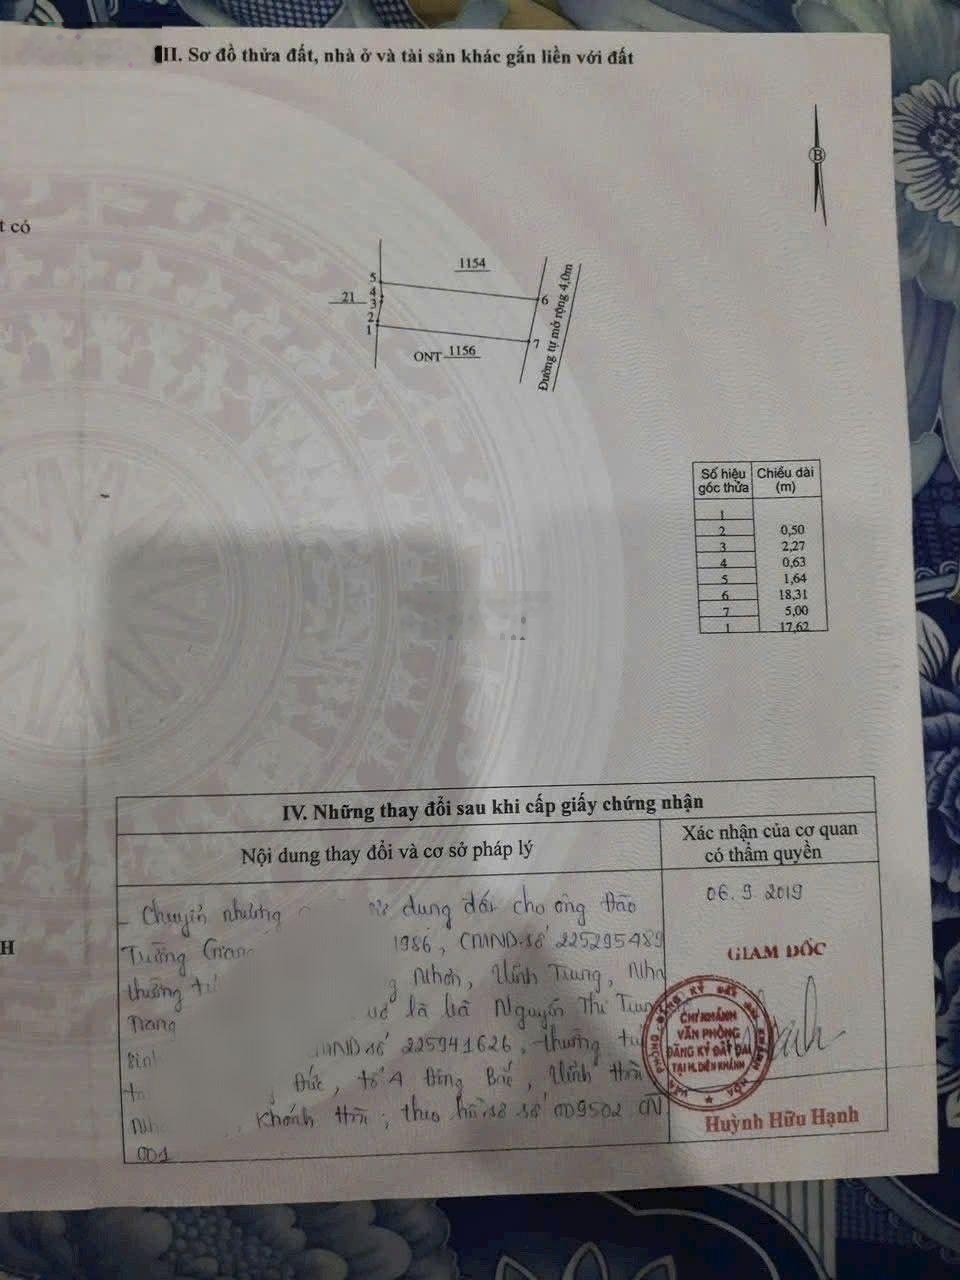 III. Sơ đồ thửa đất, nhà ở và tài sản khác gắn liền với đất
B
t có
1154
5
4
21
3
2
1
6
7
ONT 1156
Đường tự mở rộng 4,0m
Số hiệu góc thửa Chiều dài (m)
1
2 0,50
3 2,27
4 0,63
5 1,64
6 18,31
7 5,00
1 17,62
IV. Những thay đổi sau khi cấp giấy chứng nhận
Nội dung thay đổi và cơ sở pháp lý
Xác nhận của cơ quan
có thẩm quyền
- Chuyển nhượng sử dụng đất cho ông Đào
Tường Giang 1986, CMND số 225295489
thường Nhơn, Vĩnh Trung, Nha
Trang là bà Nguyễn Thị
CMND số 225941626, thường
Đức, tổ 4 Đông Bắc, Vĩnh
Khánh Hòa; theo hồ sơ số 009502 CN
001
H
06.9.2019
GIÁM ĐỐC
VĂN PHÒNG ĐĂNG KÝ ĐẤT ĐAI KHÁNH HÒA
CHI NHÁNH
VĂN PHÒNG
ĐĂNG KÝ ĐẤT ĐAI
TẠI H. DIÊN KHÁNH
Huỳnh Hữu Hạnh